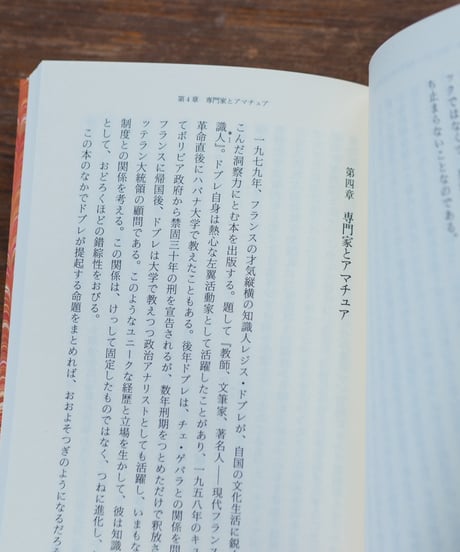 ックではなく、
ち止まらないことなのである。
第4章　専門家とアマチュア
第四章　専門家とアマチュア
一九七九年、フランスの才気縦横の知識人レジス・ドブレが、自国の文化生活に鋭
こんだ洞察力にとむ本を出版する。題して『教師、文筆家、著名人――現代フランス
識人』。ドブレ自身は熱心な左翼活動家として活躍したことがあり、一九五八年のキュ
革命直後にハバナ大学で教えたこともある。後年ドブレは、チェ・ゲバラとの関係を問
てボリビア政府から禁固三十年の刑を宣告されるが、数年刑期をつとめただけで釈放さ
フランスに帰国後、ドブレは大学で教えつつ政治アナリストとしても活躍し、いまもな
ッテラン大統領の顧問である。このようなユニークな経歴と立場を生かして、彼は知識
制度との関係を考える。この関係は、けっして固定したものではなく、つねに進化し、
として、おどろくほどの錯綜性をおびる。
この本のなかでドブレが提起する命題をまとめれば、おおよそつぎのようになるだろ